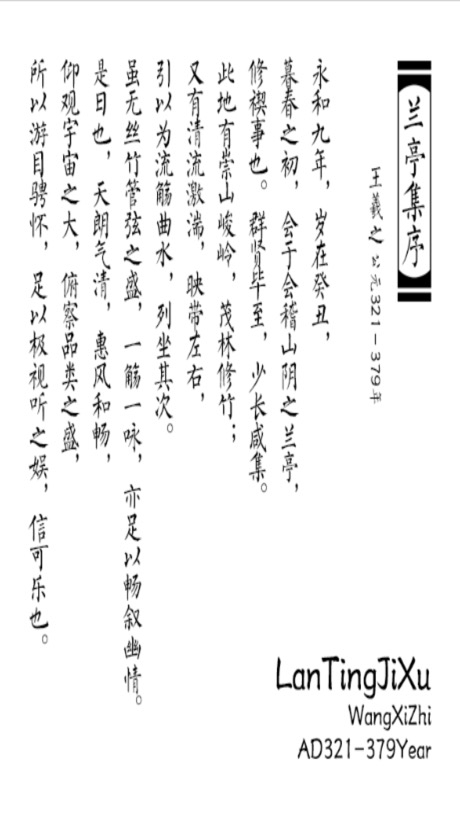 兰亭集序
王羲之 公元321-379年
永和九年，岁在癸丑，
暮春之初，会于会稽山阴之兰亭，
修禊事也。群贤毕至，少长咸集。
此地有崇山峻岭，茂林修竹；
又有清流激湍，映带左右，
引以为流觞曲水，列坐其次。
虽无丝竹管弦之盛，一觞一咏，亦足以畅叙幽情。
是日也，天朗气清，惠风和畅，
仰观宇宙之大，俯察品类之盛，
所以游目骋怀，足以极视听之娱，信可乐也。
LanTingJiXu
WangXiZhi
AD321-379Year